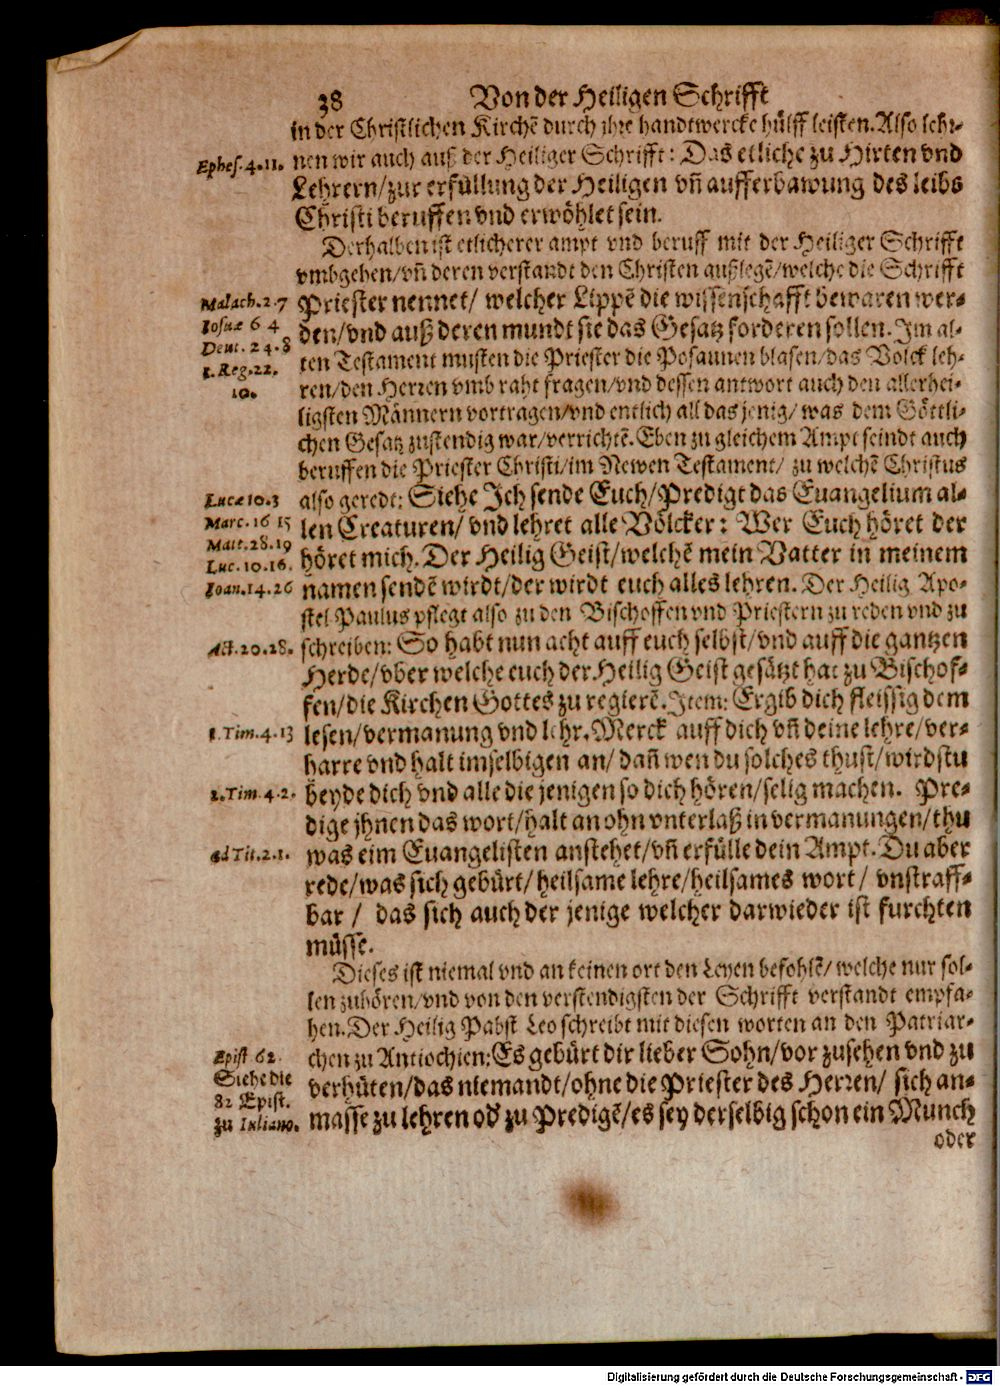 38 Von der Heiligen Schrifft
in der Christlichen Kirchē durch ihre handtwercke hülff leisten. Also lehr-
Ephes. 4. 11. nen wir auch auß der Heiliger Schrifft: Das etliche zu Hirten vnd
Lehrern/zur erfüllung der Heiligen vñ aufferbawung des leibs
Christi beruffen vnd erwöhlet sein.
Derhalben ist etlicherer ampt vnd beruff mit der Heiliger Schrifft
vmbgehen/vñ deren verstandt den Christen außlegē/welche die Schrifft
Malach. 2. 7 Priester nennet/ welcher Lippē die wissenschafft bewaren wer-
Iosuæ 6 4 den/vnd auß deren mundt sie das Gesatz forderen sollen. Im al-
Deut. 24. 8 ten Testament musten die Priester die Posaunen blasen/das Volck leh-
1. Reg. 22. ren/den Herren vmb raht fragen/vnd dessen antwort auch den allerhei-
10. ligsten Männern vortragen/vnd entlich all das jenig/ was dem Göttli-
chen Gesatz zustendig war/verrichtē. Eben zu gleichem Ampt seindt auch
beruffen die Priester Christi/im Newen Testament/ zu welchē Christus
Lucæ 10. 3 also geredt: Siehe Ich sende Euch/Predigt das Euangelium al-
Marc. 16 15 len Creaturen/ vnd lehret alle Völcker: Wer Euch höret der
Matt. 28. 19
Luc. 10. 16. höret mich. Der Heilig Geist/welchē mein Vatter in meinem
Ioan. 14. 26 namen sendē wirdt/der wirdt euch alles lehren. Der Heilig Apo-
stel Paulus pflegt also zu den Bischoffen vnd Priestern zu reden vnd zu
Act. 20. 28. schreiben: So habt nun acht auff euch selbst/vnd auff die gantzen
Herde/vber welche euch der Heilig Geist gesätzt hat zu Bischof-
fen/die Kirchen Gottes zu regierē. Item: Ergib dich fleissig dem
1. Tim. 4. 13 lesen/vermanung vnd lehr. Merck auff dich vñ deine lehre/ver-
harre vnd halt imselbigen an/ dañ wen du solches thust/wirdstu
2. Tim. 4. 2. beyde dich vnd alle die jenigen so dich hören/selig machen. Pre-
dige jhnen das wort/halt an ohn vnterlaß in vermanungen/thu
ad Tit. 2. 1. was eim Euangelisten anstehet/vñ erfülle dein Ampt. Du aber
rede/was sich gebürt/heilsame lehre/heilsames wort/ vnstraff-
bar / das sich auch der jenige welcher darwieder ist furchten
müsse.
Dieses ist niemal vnd an keinen ort den Leyen befohlē/welche nur sol-
len zuhören/vnd von den verstendigsten der Schrifft verstandt empfa-
hen. Der Heilig Pabst Leo schreibt mit diesen worten an den Patriar-
Epist 62. chen zu Antiochien: Es gebürt dir lieber Sohn/vor zusehen vnd zu
Siehe die verhüten/das niemandt/ohne die Priester des Herren/ sich an-
82 Epist.
zu Iuliano. masse zu lehren od' zu Predigē/es sey derselbig schon ein Munch
oder
Digitalisierung gefördert durch die Deutsche Forschungsgemeinschaft - DFG